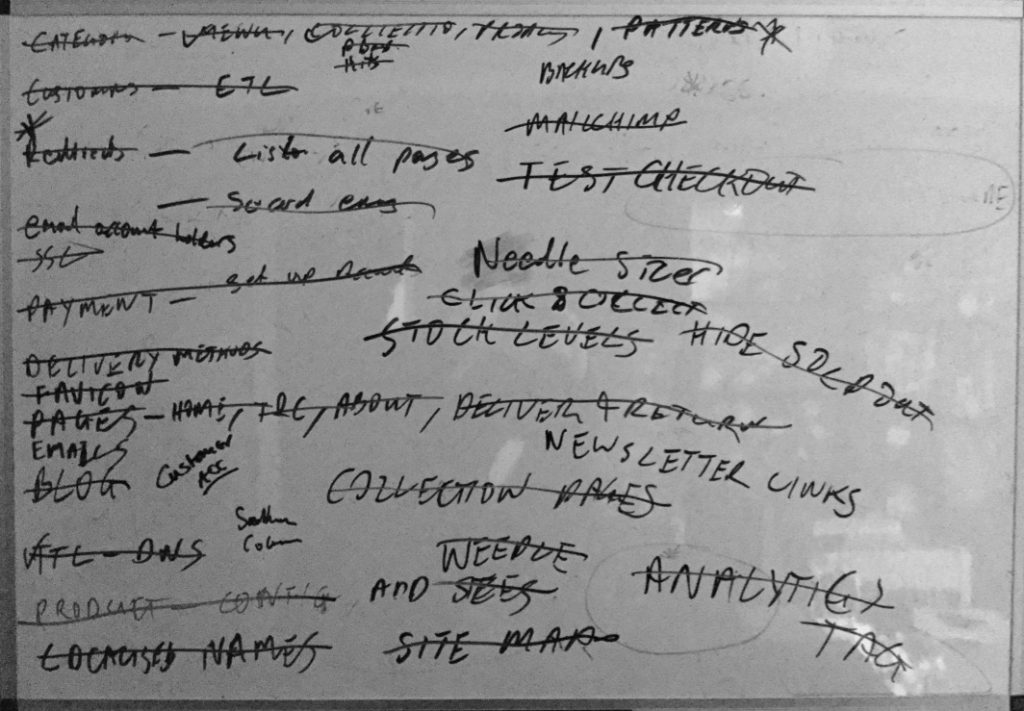 CATEGORY - MENU, COLLECTIO, , PATTERNS *
BACKUPS
CUSTOMERS - ETL
MAILCHIMP
*
Redirects - List all pages
TEST CHECKOUT
email account holders
SSL
Needle Sizes
PAYMENT - set up
CLICK & COLLECT
STOCK LEVELS HIDE SOLD OUT
DELIVERY METHODS
FAVICON
PAGES - HOME, T&C, ABOUT, DELIVER & RETURN
EMAILS
NEWSLETTER LINKS
BLOG Customer ACC
COLLECTION PAGES
TTL - DNS
NEEDLE
PRODUCT - CONFIG
AND
ANALYTICS
LOCALISED NAMES SITE MAP
TAG